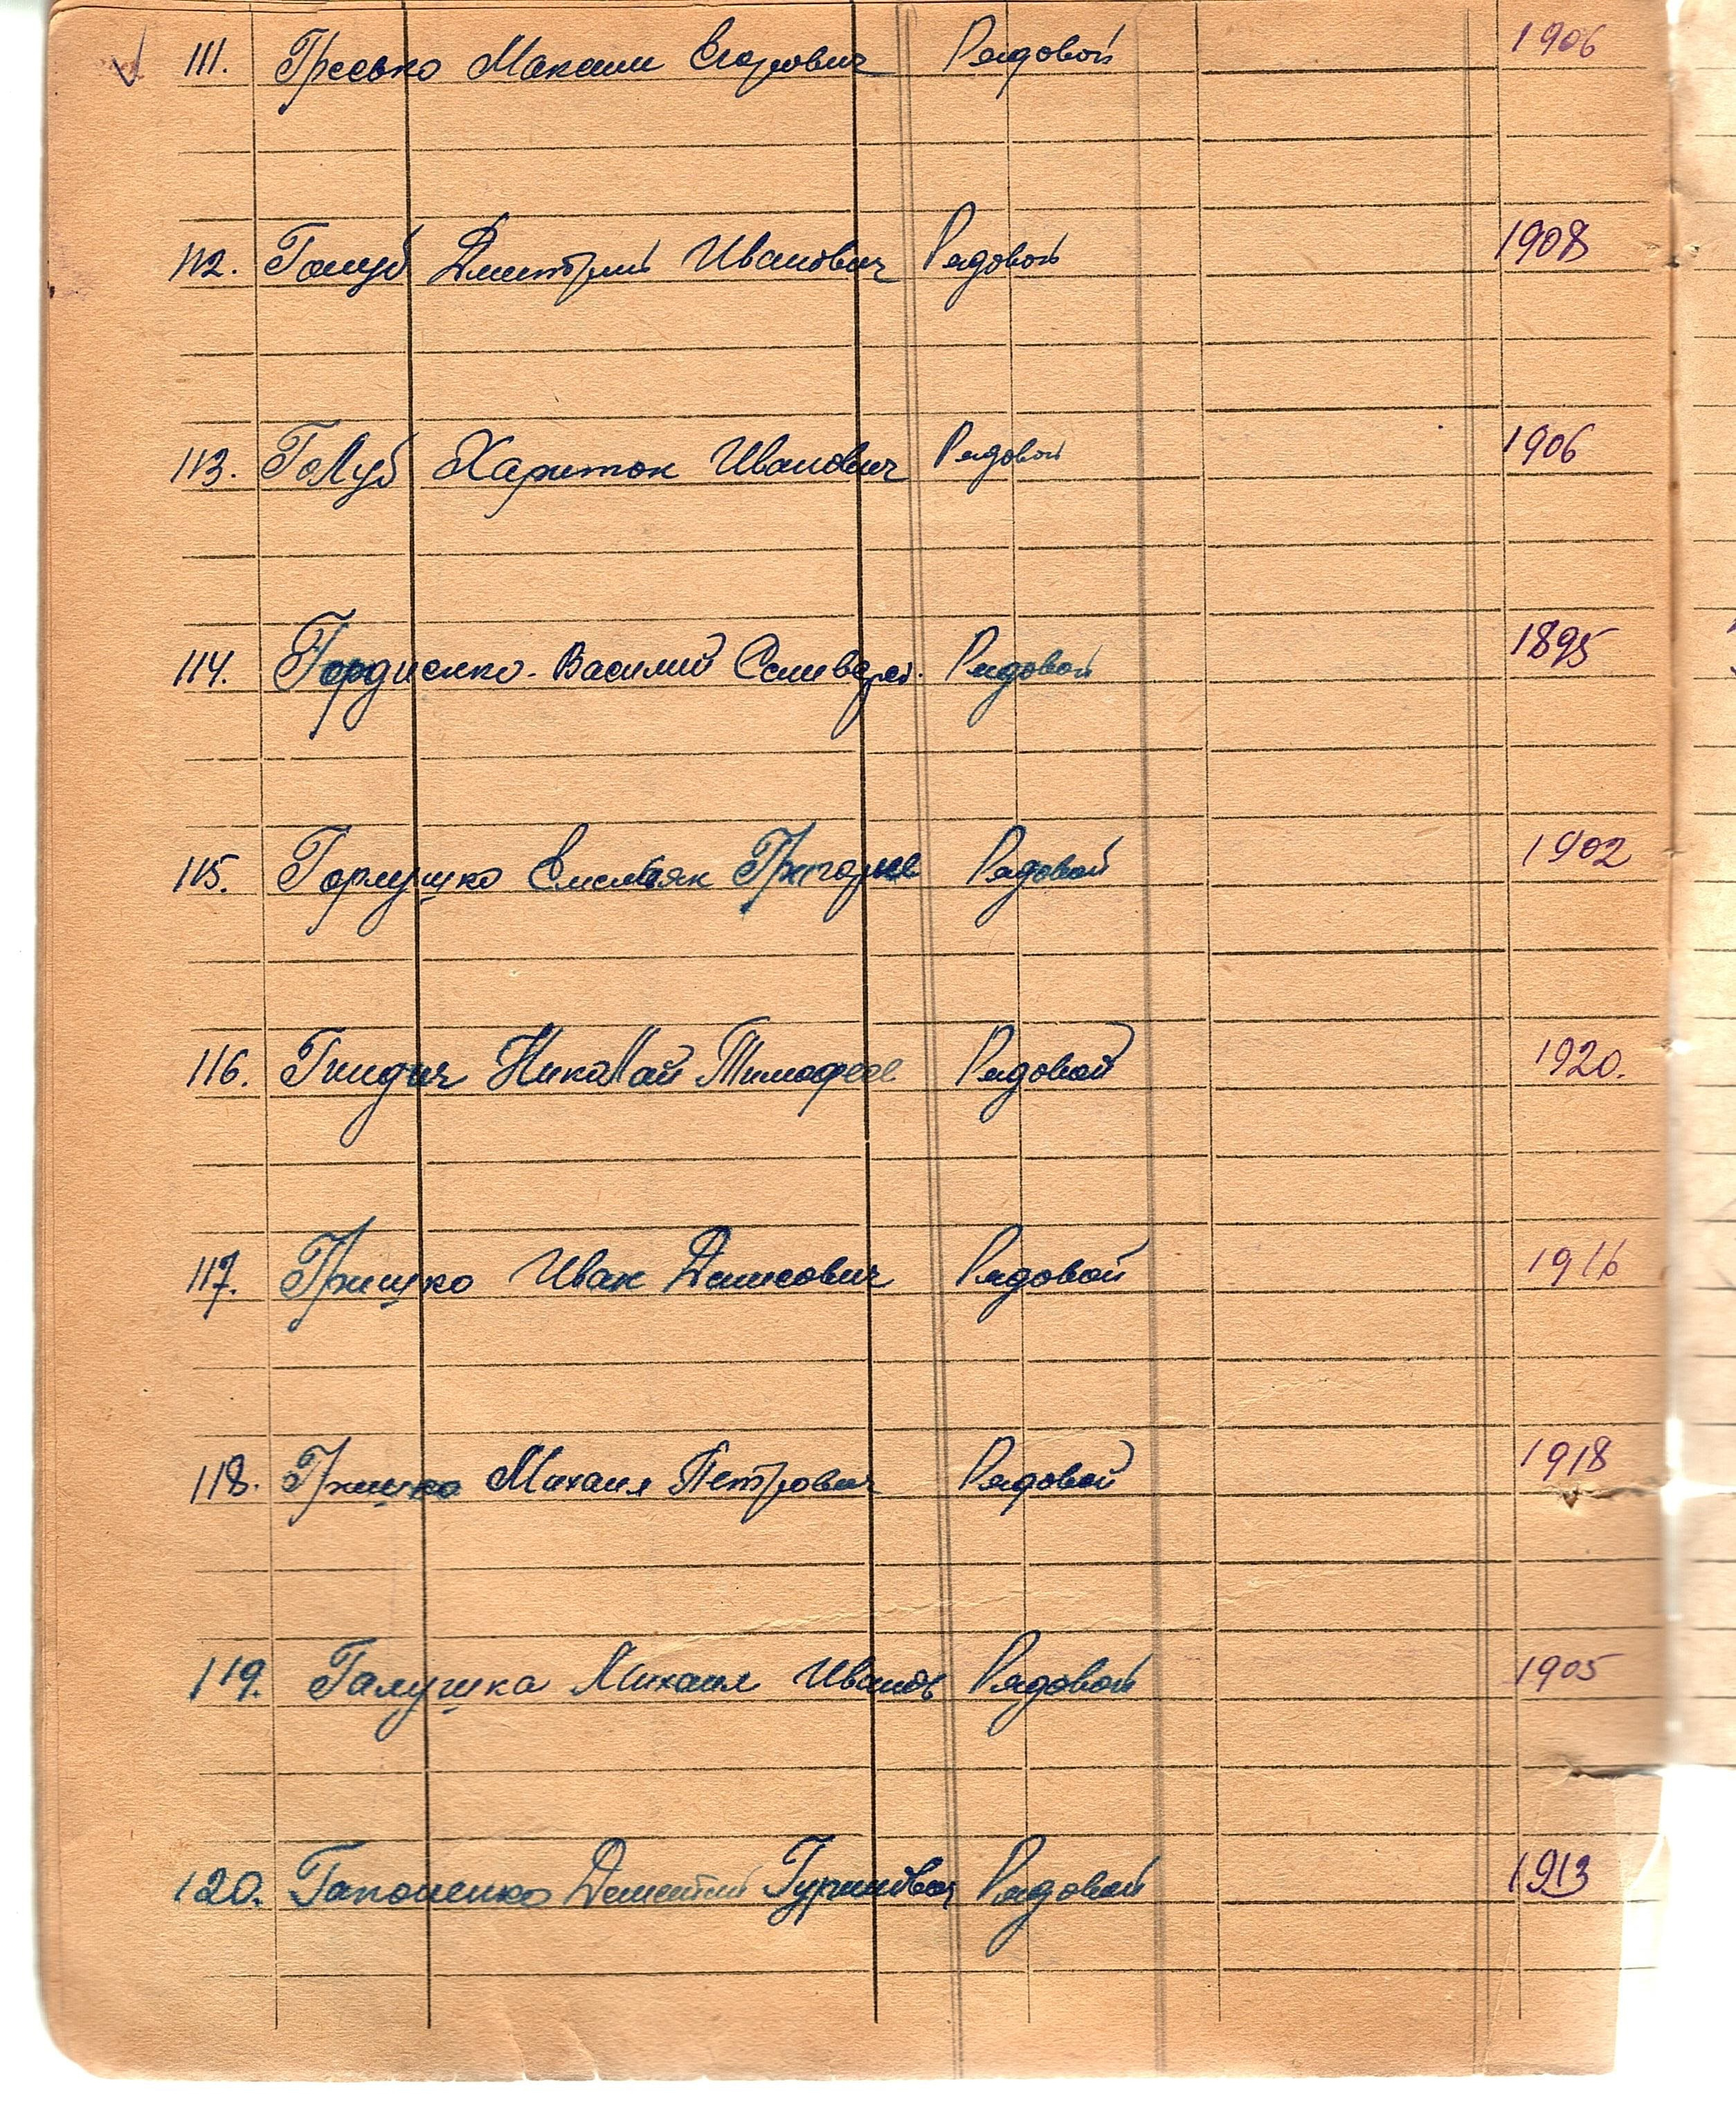 111. Гресько Максим Егорович Рядовой 1906
112. Голуб Дмитрий Иванович Рядовой 1908
113. Голуб Харитон Иванович Рядовой 1906
114. Гордиенко Василий Селиверст. Рядовой 1895
115. Горлушко Емельян Григорье Рядовой 1902
116. Гнидич Николай Тимофее Рядовой 1920.
117. Гришко Иван Денисович Рядовой 1916
118. Гришко Михаил Петрович Рядовой 1918
119. Галушка Михаил Иванов Рядовой 1905
120. Гапоненко Дементий Рядовой 1913